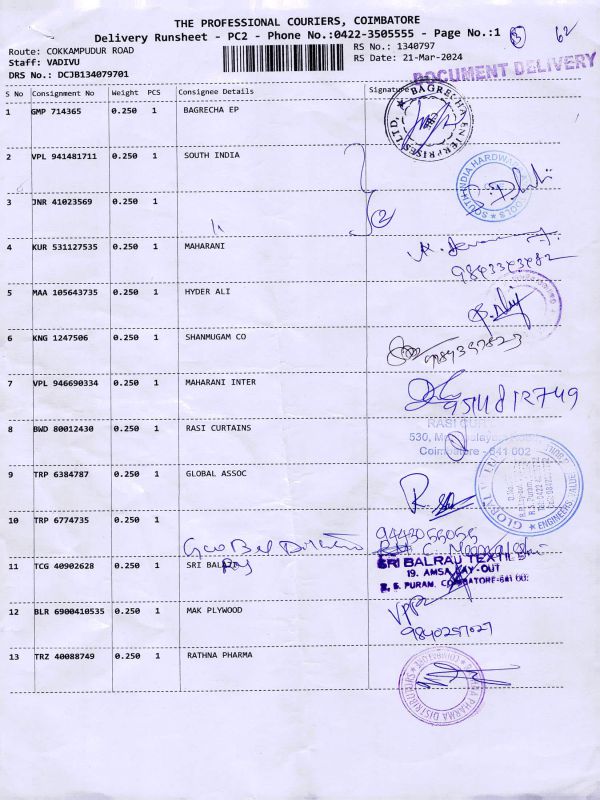 THE PROFESSIONAL COURIERS, COIMBATORE
Delivery Runsheet - PC2 - Phone No.:0422-3505555 - Page No.:1
3 62
Route: COKKAMPUDUR ROAD
RS No.: 1340797
Staff: VADIVU
RS Date: 21-Mar-2024
DRS No.: DCJB134079701
DOCUMENT DELIVERY
S No Consignment No Weight PCS Consignee Details Signature
1 GMP 714365 0.250 1 BAGRECHA EP
BAGRECHA ENTERPRISES LTD.
2 VPL 941481711 0.250 1 SOUTH INDIA
3 JNR 41023569 0.250 1
2
4 KUR 531127535 0.250 1 MAHARANI
9843343482
5 MAA 105643735 0.250 1 HYDER ALI
6 KNG 1247506 0.250 1 SHANMUGAM CO
7 VPL 946690334 0.250 1 MAHARANI INTER
8 BWD 80012430 0.250 1 RASI CURTAINS
Coimbatore - 641 002
9 TRP 6384787 0.250 1 GLOBAL ASSOC
10 TRP 6774735 0.250 1
9443055055
11 TCG 40902628 0.250 1 SRI BALRAJ
SRI BALRAJ TEXTILE
19. AMSA LAY-OUT
R. S. PURAM, COIMBATORE-641 002
12 BLR 6900410535 0.250 1 MAK PLYWOOD
9840297027
13 TRZ 40088749 0.250 1 RATHNA PHARMA
RATHNA PHARMA DISTRIBUTORS